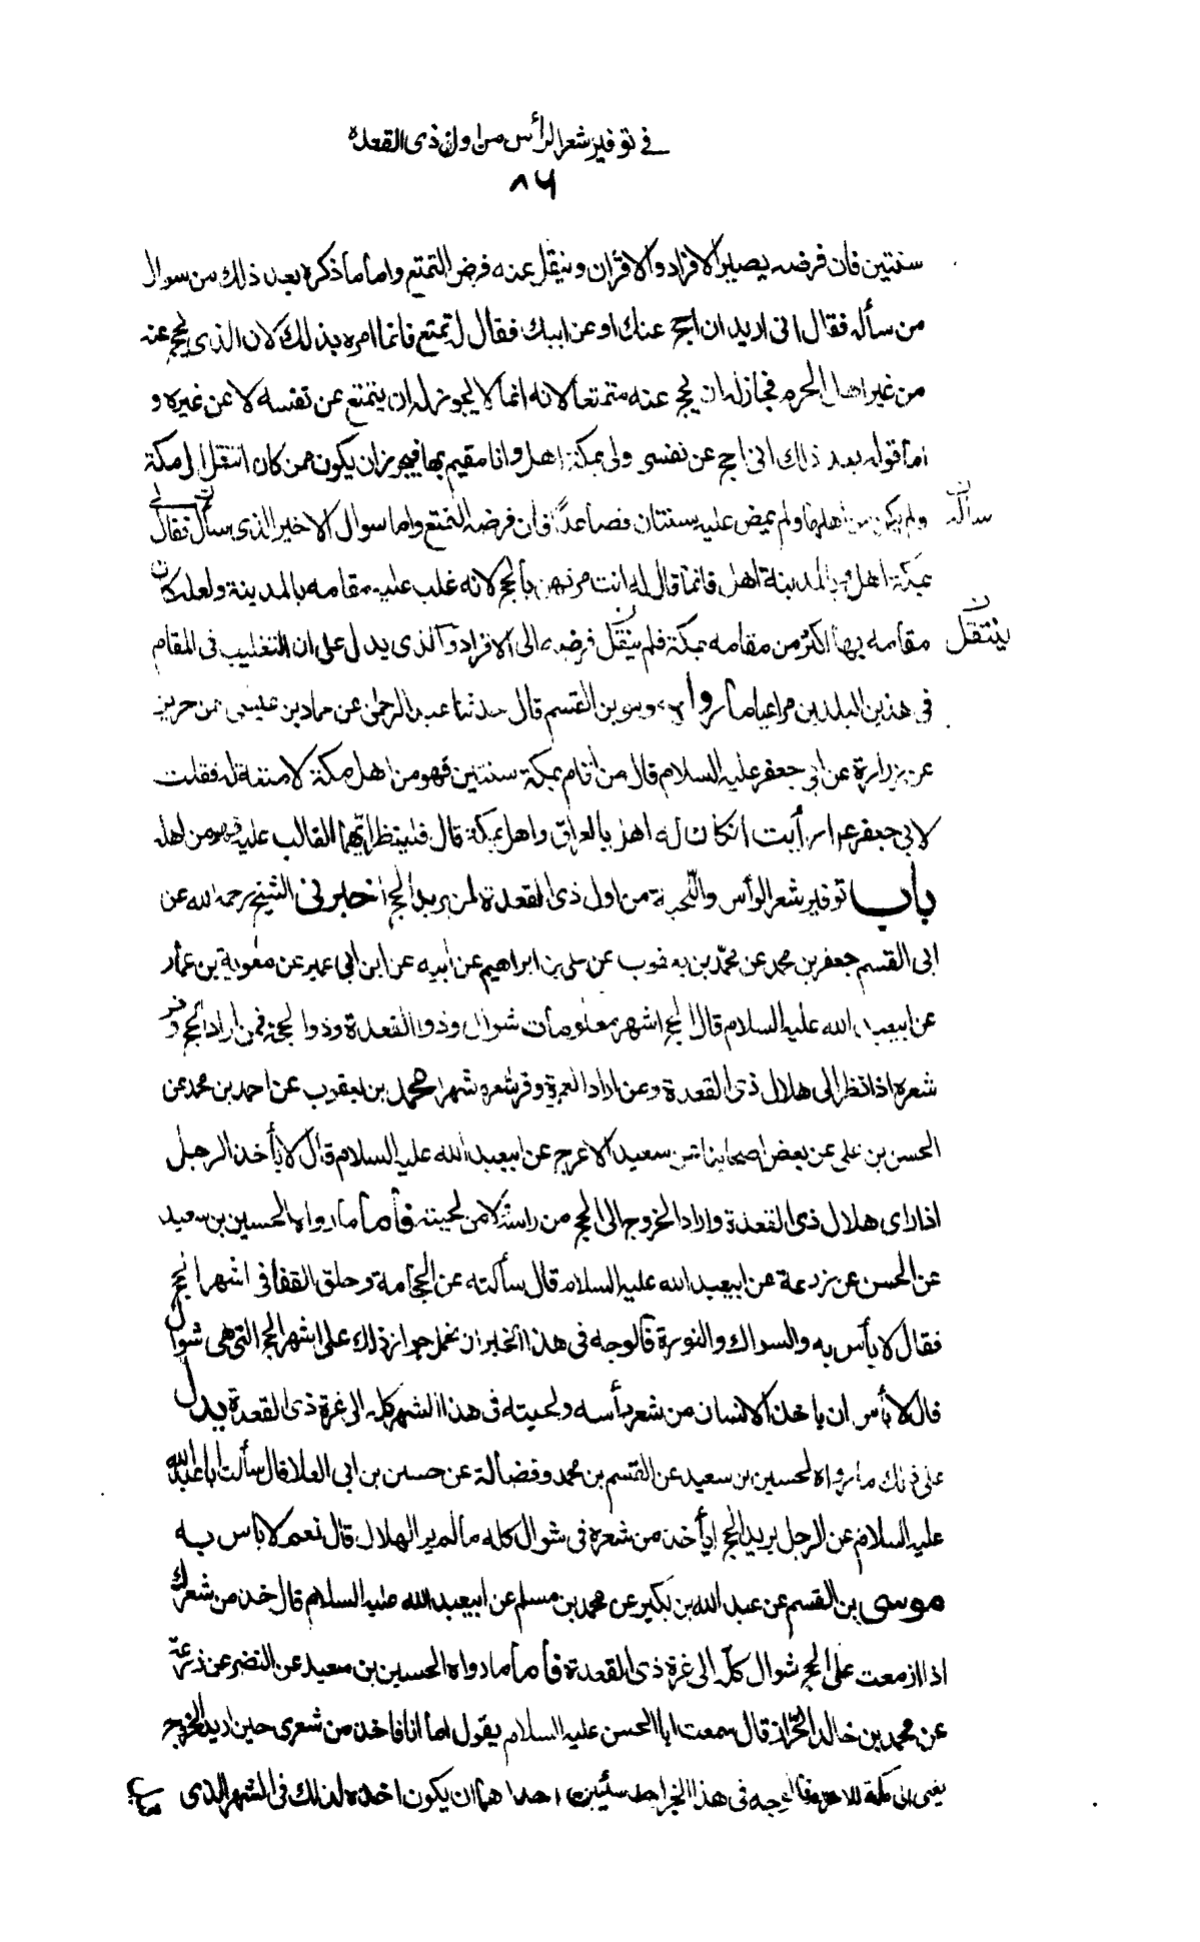 في توفير شعر الرأس من اول ذى القعده
٨٦
سنتين فان فرضه يصير الافراد والاقران وينقل عنه فرض التمتع واما ما ذكره بعد ذلك من سوال
من سأله فقال انى اريد ان احج عنك او عن ابيك فقال له تمتع فانما امره بذلك لان الذى يحج عنه
من غير اهل الحرم فجاز له ان يحج عنه متمتعا لانه انما لا يجوز له ان يتمتع عن نفسه لا عن غيره و
اما قوله بعد ذلك انى احج عن نفسى ولى بمكة اهل وانا مقيم بها فيجوز ان يكون ممن كان انتقل الى مكة
ولم يكن من اهلها ولم يمض عليه سنتان فصاعدًا فان فرضه التمتع واما سوال الاخير الذى سأل فقال لى
سأله ن
بمكة اهل وبالمدينة اهل فانما قال له انت مرتهن بالحج لانه غلب عليه مقامه بالمدينة ولعله كان
مقامه بها اكثر من مقامه بمكة فلم ينتقل فرضه الى الافراد والذى يدل على ان التغليب فى المقام
ينتقل ن
فى هذين البلدين مراعيا ما رواه موسى بن القسم قال حدثنا عبد الرحمن عن حماد بن عيسى عن حريز
عن زرارة عن ابى جعفر عليه السلام قال من اقام بمكة سنتين فهو من اهل مكة لا متعة له فقلت
لابى جعفر ع ارأيت ان كان له اهل بالعراق واهل بمكة قال فلينظر ايهما الغالب عليه فهو من اهله
باب توفير شعر الرأس واللحية من اول ذى القعدة لمن يريد الحج اخبرنى الشيخ رحمه الله عن
ابى القسم جعفر بن محمد عن محمد بن يعقوب عن على بن ابراهيم عن ابيه عن ابن ابى عمير عن معوية بن عمار
عن ابيعبد الله عليه السلام قال الحج اشهر معلومات شوال وذو القعدة وذو الحجة فمن اراد الحج وفر
شعره اذا نظر الى هلال ذى القعدة ومن اراد العمرة وفر شعره شهرا محمد بن يعقوب عن احمد بن محمد عن
الحسن بن على عن بعض اصحابنا عن سعيد الاعرج عن ابيعبد الله عليه السلام قال لا يأخذ الرجل
اذا راى هلال ذى القعدة واراد الخروج الى الحج من راسه ولا من لحيته فأما ما رواه الحسين بن سعيد
عن الحسن عن زرعة عن ابيعبد الله عليه السلام قال سألته عن الحجامة وحلق القفا فى اشهر الحج
فقال لا بأس به والسواك والنورة فالوجه فى هذا الخبر ان نحمل جواز ذلك على اشهر الحج التى هى شوال
فانه لا بأس ان ياخذ الانسان من شعر رأسه ولحيته فى هذا الشهر كله الى غرة ذى القعدة يدل
على ذلك ما رواه الحسين بن سعيد عن القسم بن محمد وفضالة عن حسين بن ابى العلا قال سألت ابا عبد الله
عليه السلام عن الرجل يريد الحج ايأخذ من شعره فى شوال كله ما لم ير الهلال قال نعم لا باس به
موسى بن القسم عن عبد الله بن بكير عن محمد بن مسلم عن ابيعبد الله عليه السلام قال خذ من شعرك
اذا ازمعت على الحج شوال كله الى غرة ذى القعدة فأما ما رواه الحسين بن سعيد عن النضر عن زرعة
عن محمد بن خالد الخزاز قال سمعت ابا الحسن عليه السلام يقول اما انا فاخذ من شعرى حين اريد الخروج
يعنى الى مكة للاحرام فالوجه فى هذا الخبر احد شيئين احدهما ان يكون اخذه لذلك فى الشهر الذى